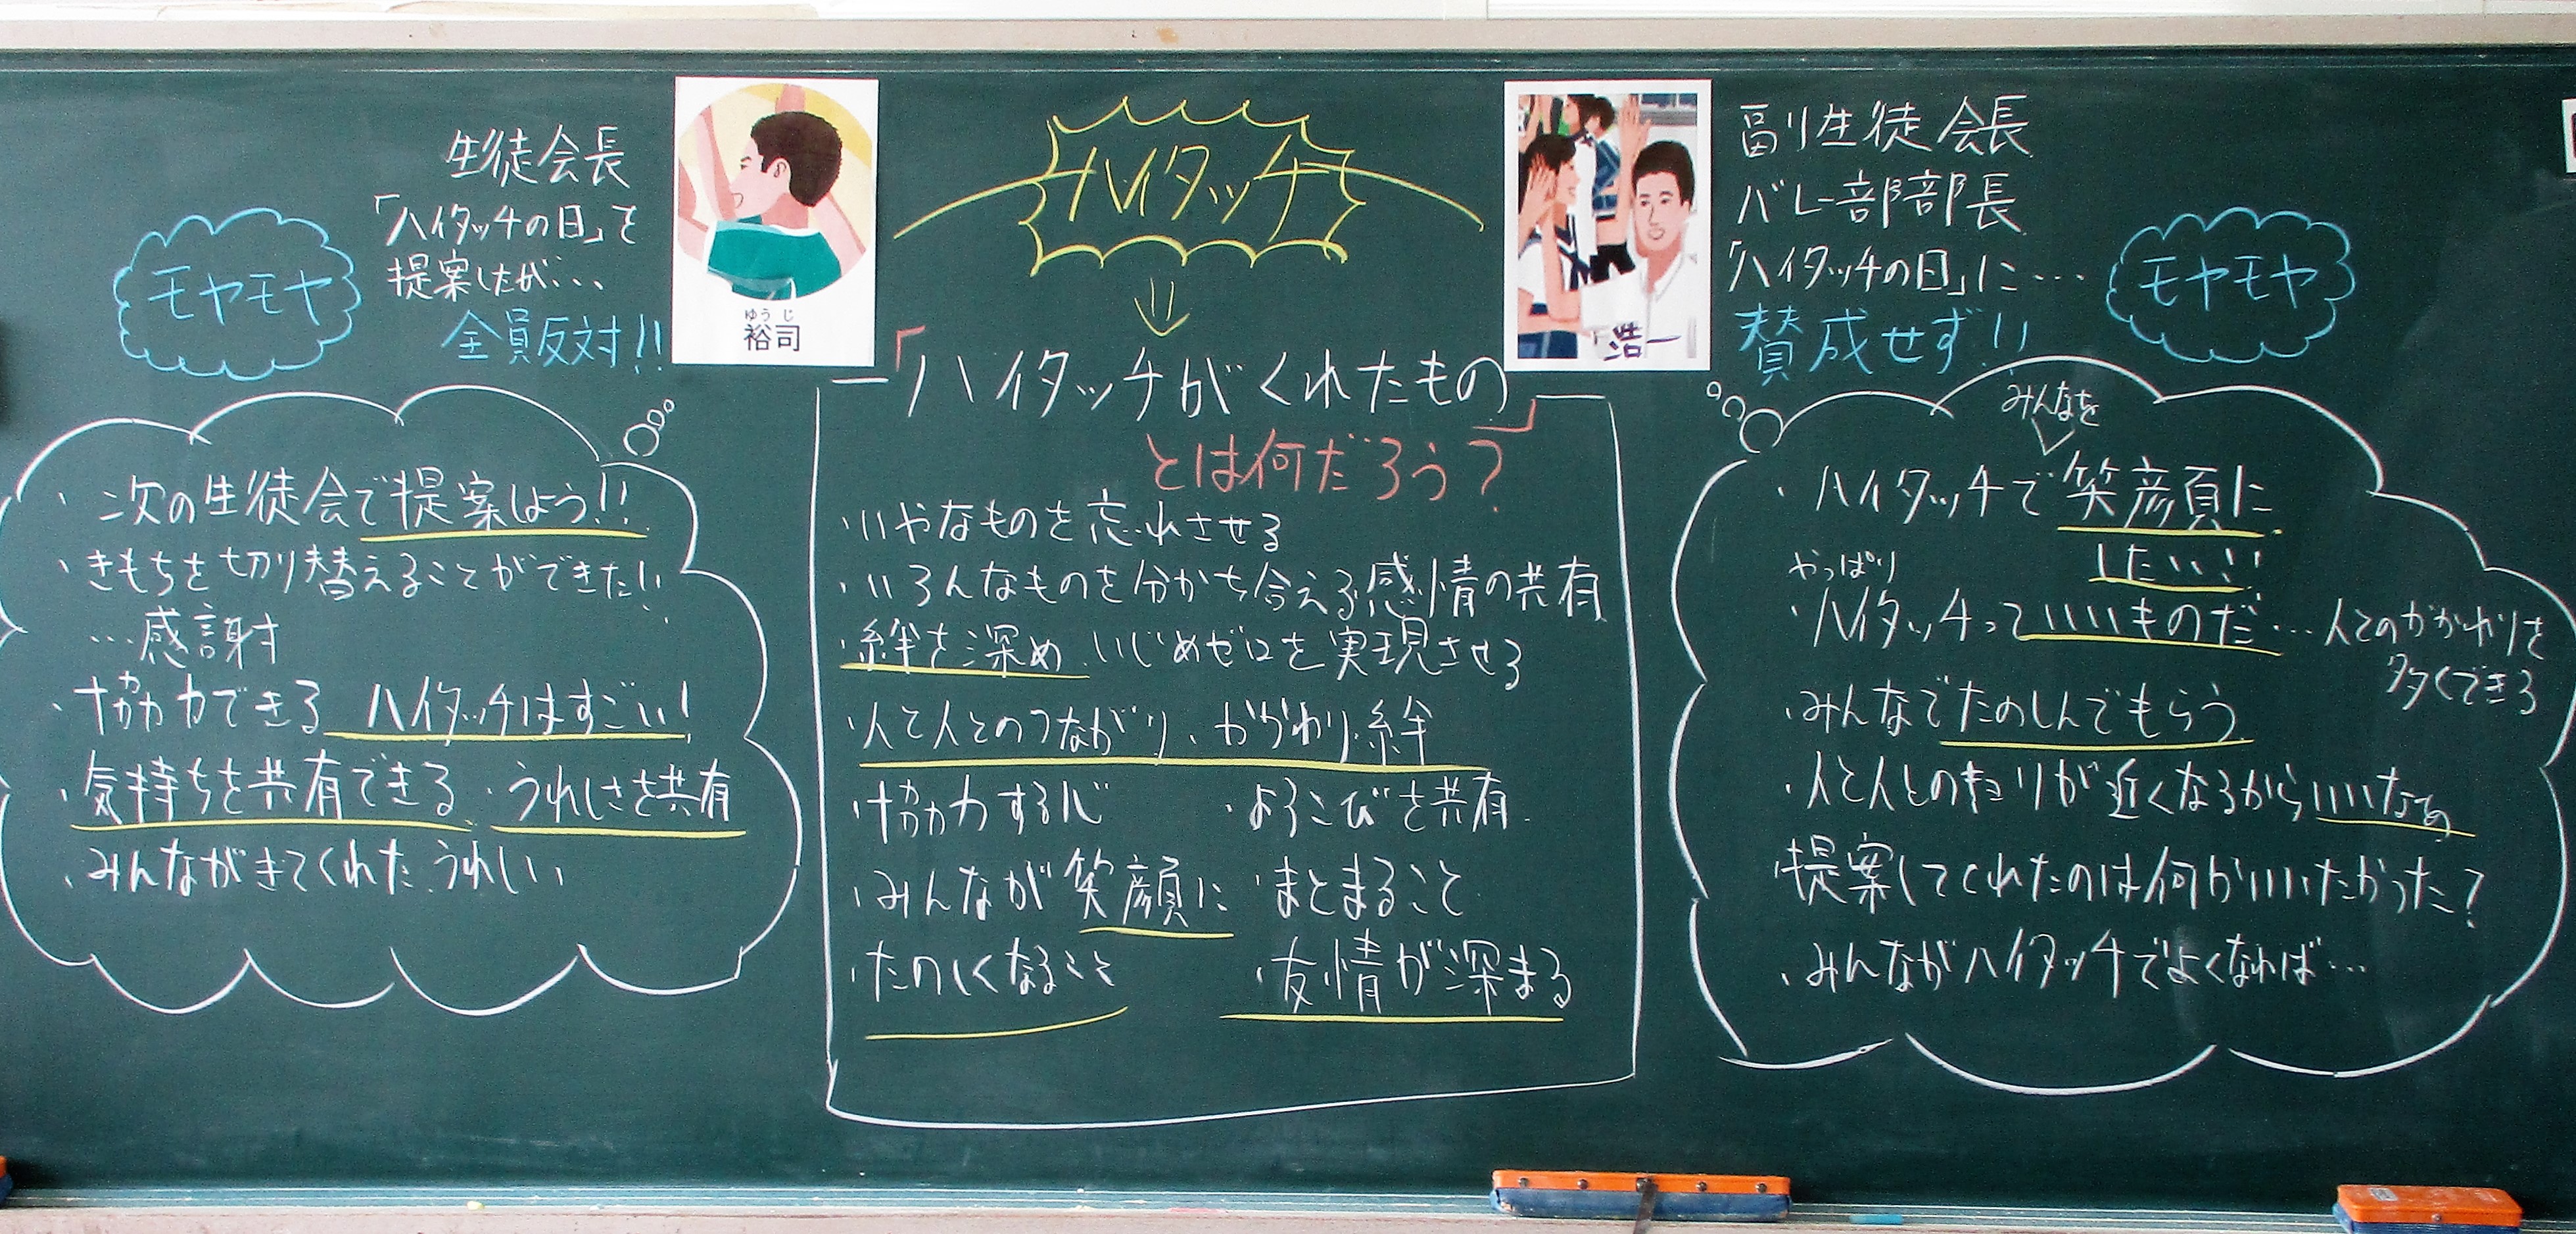 生徒会長
「ハイタッチの日」を
提案したが…
全員反対!!
モヤモヤ
ゆうじ
裕司
・次の生徒会で提案しよう!!
・きもちを切り替えることができた!!
…感謝
・協力できる ハイタッチはすごい!
・気持ちを共有できる ・うれしさを共有
・みんながきてくれた うれしい
ハイタッチ
⇓
「ハイタッチがくれたもの」
とは何だろう?
・いやなものを忘れさせる
・いろんなものを分かち合える 感情の共有
・絆を深め、いじめゼロを実現させる
・人と人とのつながり、かかわり、絆
・協力する心 ・よろこびを共有
・みんなが笑顔に ・まとまること
・たのしくなること ・友情が深まる
浩一
副生徒会長
バレー部部長
「ハイタッチの日」に…
賛成せず!!
モヤモヤ
みんなを
・ハイタッチで笑顔に
したい!!
やっぱり
・ハイタッチっていいものだ…人とのかかわりを
多くできる
・みんなでたのしんでもらう
・人と人とのキョリが近くなるからいいなぁ
・提案してくれたのは何がいいたかった?
・みんながハイタッチでよくなれば…